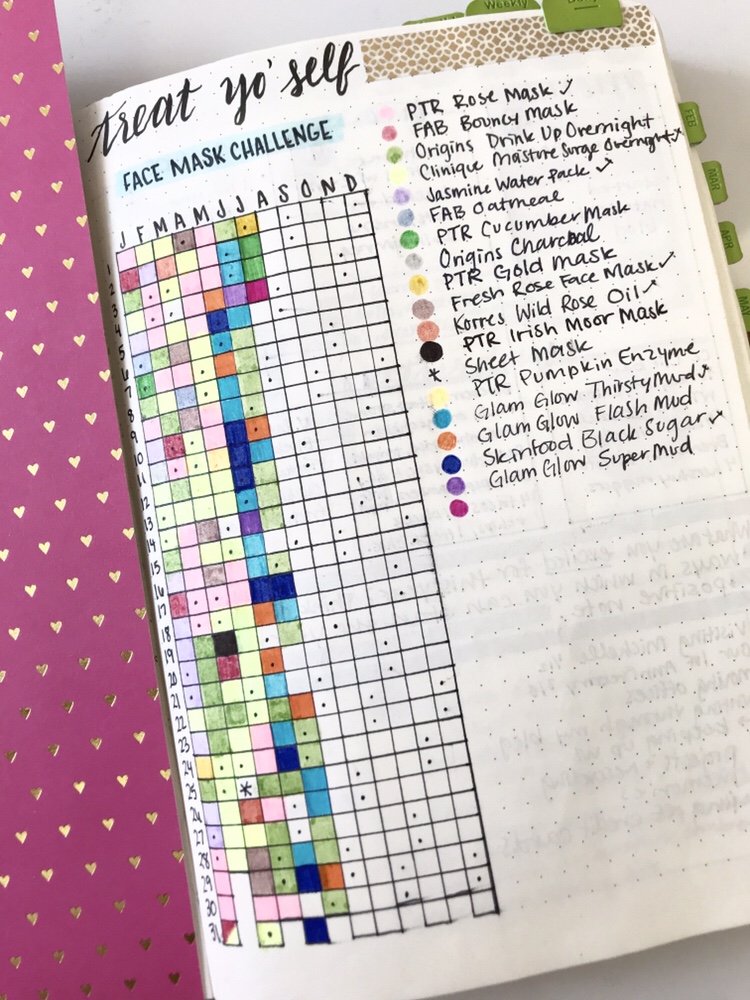 Weekly
treat yo' self
FACE MASK CHALLENGE
J F M A M J J A S O N D
1
2
3
4
5
6
7
8
9
10
11
12
13
14
15
16
17
18
19
20
21
22
23
24
25
26
27
28
29
30
31
*
PTR Rose Mask ✓
FAB Bouncy Mask
Origins Drink Up Overnight
Clinique Moisture Surge Overnight ✓
Jasmine Water Pack ✓
FAB Oatmeal
PTR Cucumber Mask
Origins Charcoal
PTR Gold Mask
Fresh Rose Face Mask ✓
Korres Wild Rose Oil ✓
PTR Irish Moor Mask
* Sheet Mask
PTR Pumpkin Enzyme
Glam Glow Thirsty Mud ✓
Glam Glow Flash Mud
Skinfood Black Sugar ✓
Glam Glow Super Mud
FEB
MAR
APR